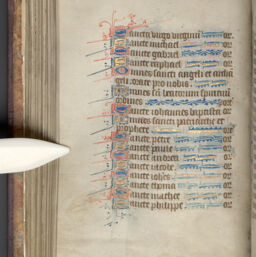 Sancta virgo virginum or
Sancte michael or
Sancte gabriel or
Sancte raphael or
Omnes sancti angeli et archã
geli. orate pro nobis.
Omnes sc̃i beatorum spirituũ
ordines or
Sancte iohannes baptista or
Omnes sancti patriarche et
prophete or
Sancte petre or
Sancte paule or
Sancte andrea or
Sancte iacobe or
Sancte iohẽs or
Sancte thoma or
Sancte mathee or
Sancte philippe or